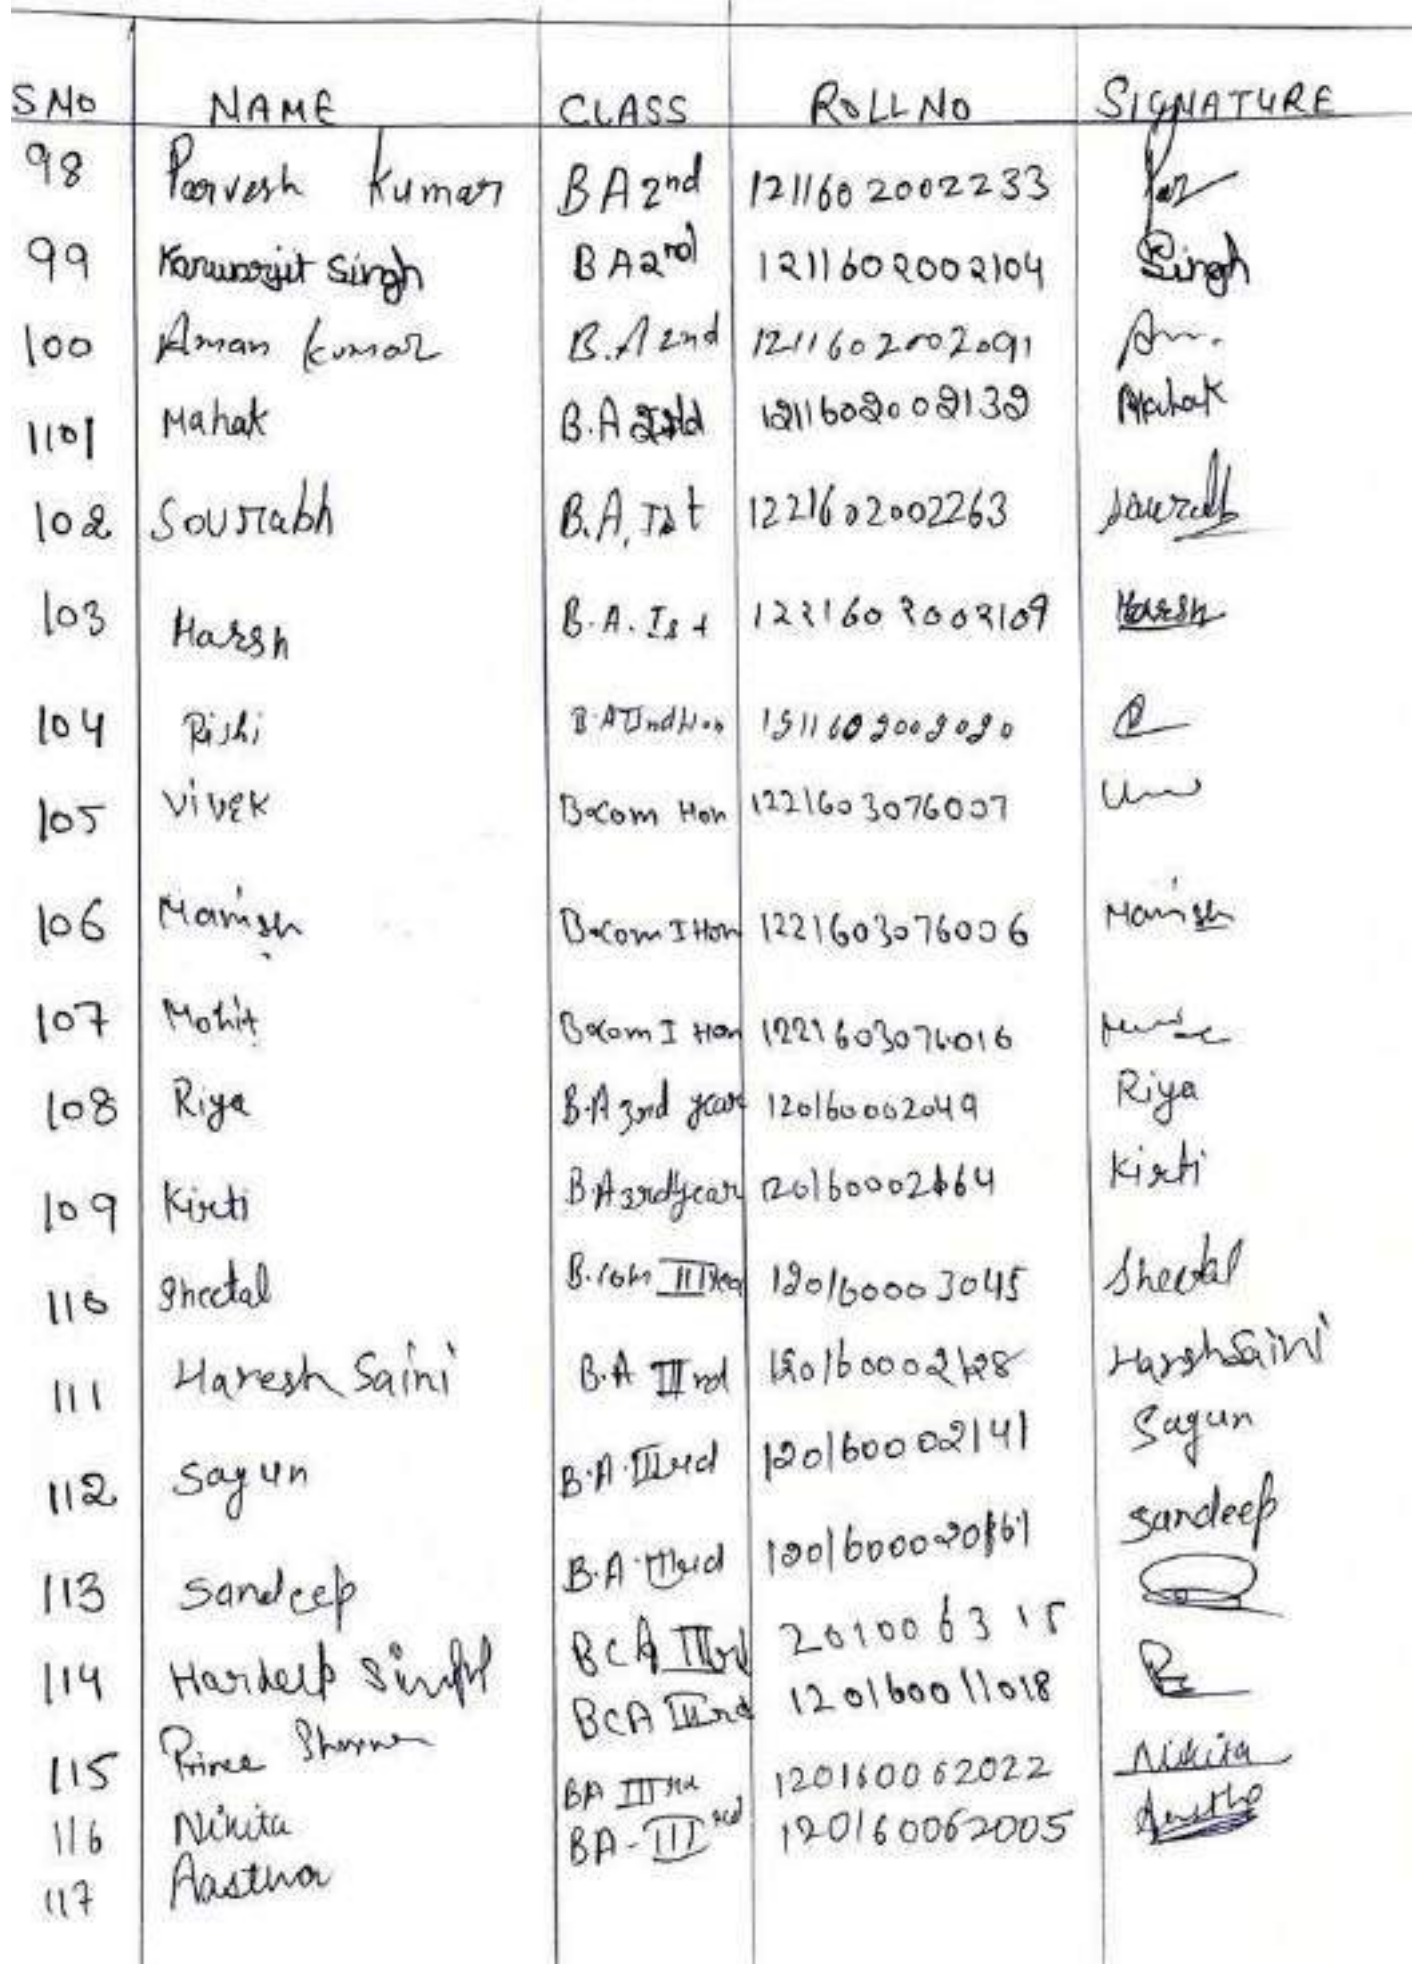 S NO NAME CLASS ROLL NO SIGNATURE
98 Parvesh Kumar BA 2nd 1211602002233
99 Karuwarjit Singh BA 2nd 1211602002104 Singh
100 Aman Kumar B.A 2nd 1211602002091
1101 Mahak B.A 1211602002132 Mahak
102 Sourabh B.A. Ist 1221602002263 Sourabh
103 Harsh B.A. Ist 1221602002109 Harsh
104 Rishi B.A IInd Hon 1211602002020
105 Vivek B.com Hon 1221603076007
106 Manish B.com I Hon 1221603076006 Manish
107 Mohit B.com I Hon 1221603076016
108 Riya B.A 3rd year 120160002049 Riya
109 Kirti B.A 3rd year 120160002164 Kirti
110 Sheetal B.com III 120160003045 Sheetal
111 Haresh Saini B.A IIIrd 120160002128 Harsh Saini
112 Sagun B.A. IIIrd 120160002141 Sagun
113 Sandeep B.A. IIIrd Sandeep
114 Hardeep Singh BCA IIIrd 2010063 15
115 Prince Sharma BCA IIIrd 120160011018
116 Nikita BA IIIrd 120160062022 Nikita
117 Aastha BA-IIIrd 120160062005 Aastha